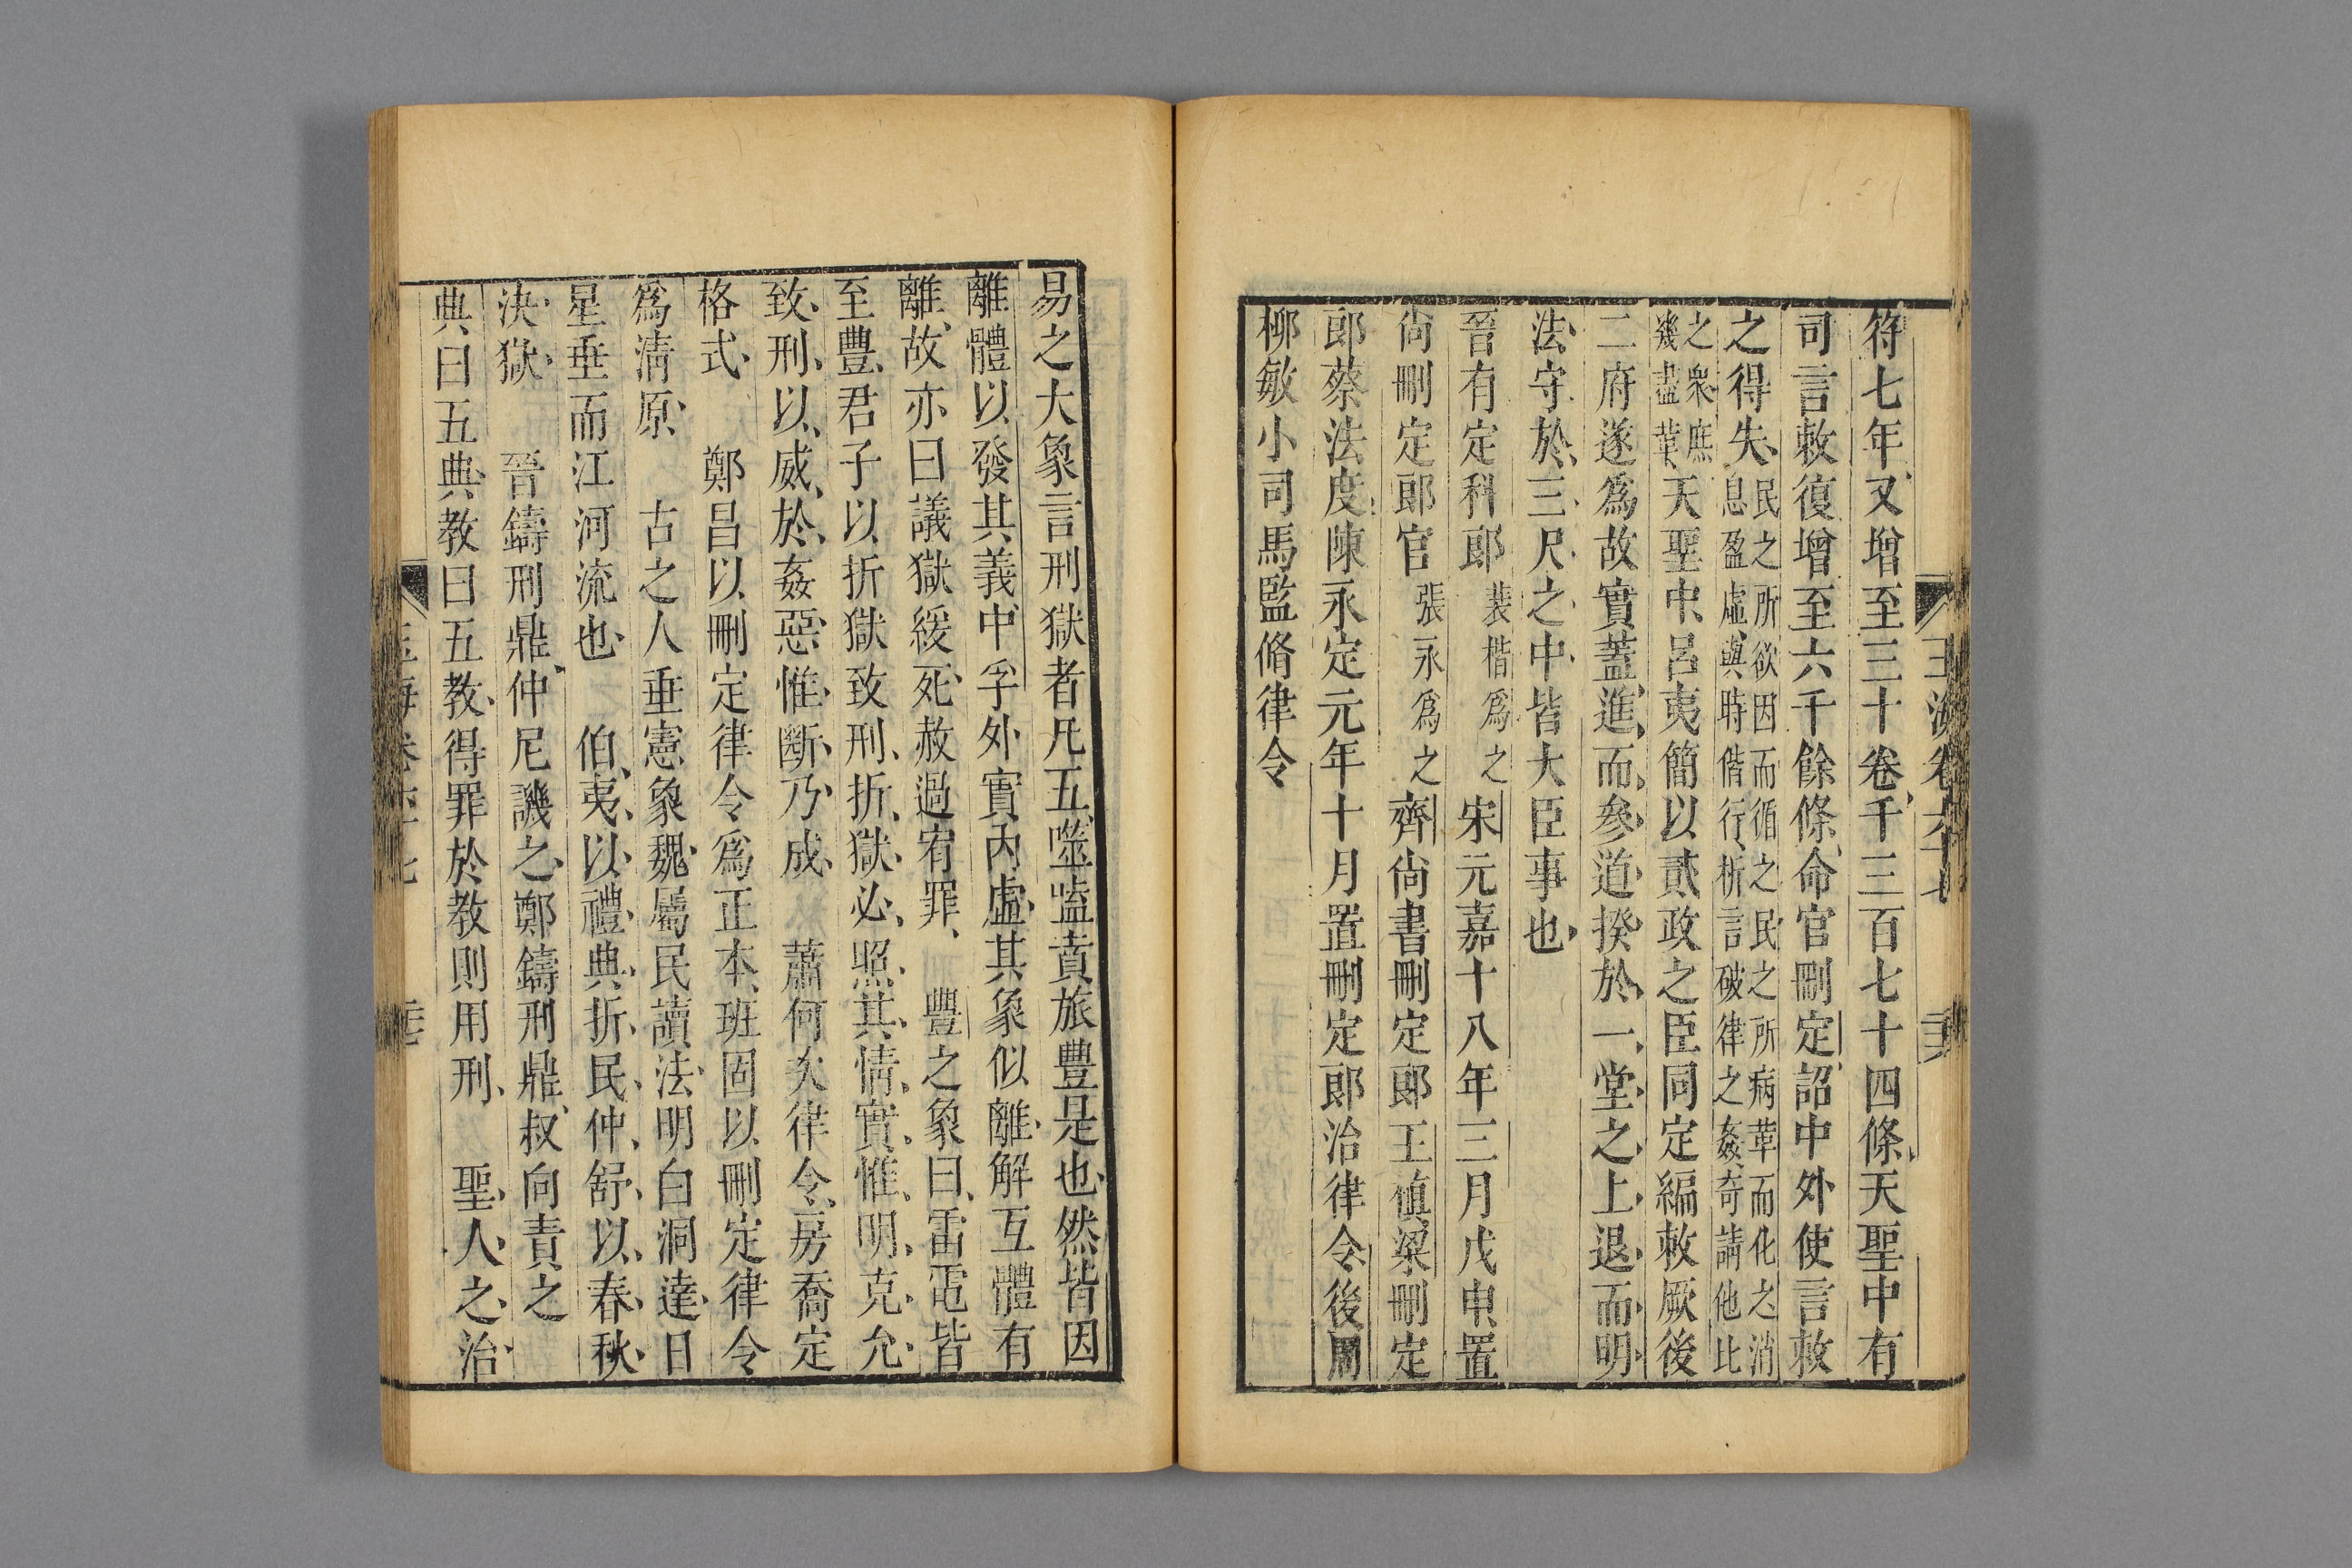 玉海卷六十七
符七年又增至三十卷千三百七十四條天聖中有
司言敕復增至六千餘條命官刪定詔中外使言敕
之得失民之所欲因而循之民之所病革而化之消
息盈虛與時偕行析言破律之姦奇請他比
之衆庶
幾盡革天聖中呂夷簡以貳政之臣同定編敕厥後
二府遂爲故實蓋進而參道揆於一堂之上退而明
法守於三尺之中皆大臣事也
晉有定科郎裴楷爲之宋元嘉十八年三月戊申置
尙刪定郎官張永爲之齊尙書刪定郎王愼梁刪定
郎蔡法度陳永定元年十月置刪定郎治律令後周
柳敏小司馬監脩律令
易之大象言刑獄者凡五噬嗑賁旅豐是也然皆因
離體以發其義中孚外實內虛其象似離解互體有
離故亦曰議獄緩死赦過宥罪　豐之象曰雷電皆
至豐君子以折獄致刑折獄必照其情實惟明克允
致刑以威於姦惡惟斷乃成　蕭何次律令房喬定
格式　鄭昌以刪定律令爲正本班固以刪定律令
爲淸原　古之人垂憲象魏屬民讀法明白洞達日
星垂而江河流也　伯夷以禮典折民仲舒以春秋
決獄　晉鑄刑鼎仲尼譏之鄭鑄刑鼎叔向責之
典曰五典敎曰五敎得罪於敎則用刑　聖人之治